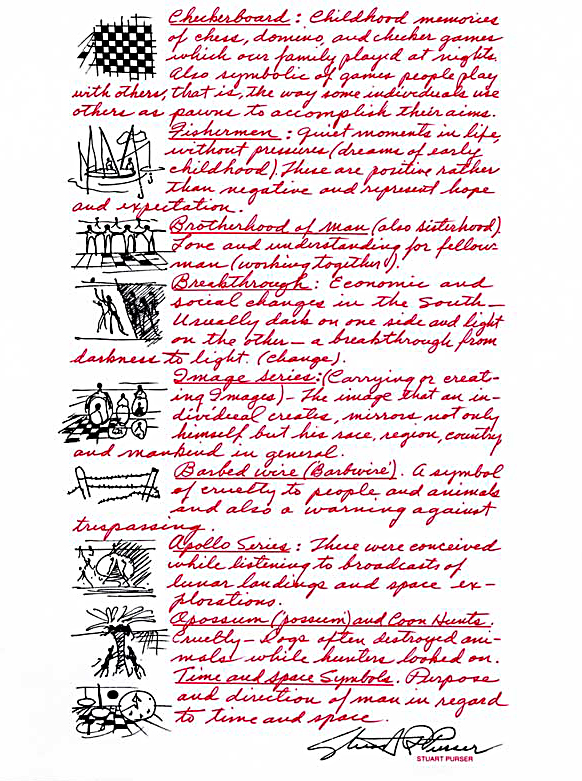 Checkerboard: Childhood memories
of chess, domino, and checker games
which our family played at nights.
Also symbolic of games people play
with others, that is, the way some individuals use
others as pawns to accomplish their aims.
Fishermen: Quiet moments in life,
without pressures (dreams of early
childhood). These are positive rather
than negative and represent hope
and expectation.
Brotherhood of man (also sisterhood).
Love and understanding for fellow-
man (working together).
Breakthrough: Economic and
social changes in the South—
Usually dark on one side and light
on the other— a breakthrough from
darkness to light. (change).
Image series: (Carrying or creat-
ing Images)— The image that an in-
dividual creates, mirrors not only
himself but his race, region, country
and mankind in general.
Barbed wire (Barbwire). A symbol
of cruelty to people and animals
and also a warning against
trespassing.
Apollo Series: These were conceived
while listening to broadcasts of
lunar landings and space ex-
plorations.
Opossum (possum) and Coon Hunts.
Cruelty— Dogs often destroyed ani-
mals while hunters looked on.
Time and space Symbols. Purpose
and direction of man in regard
to time and space.
Stuart R Purser
STUART PURSER